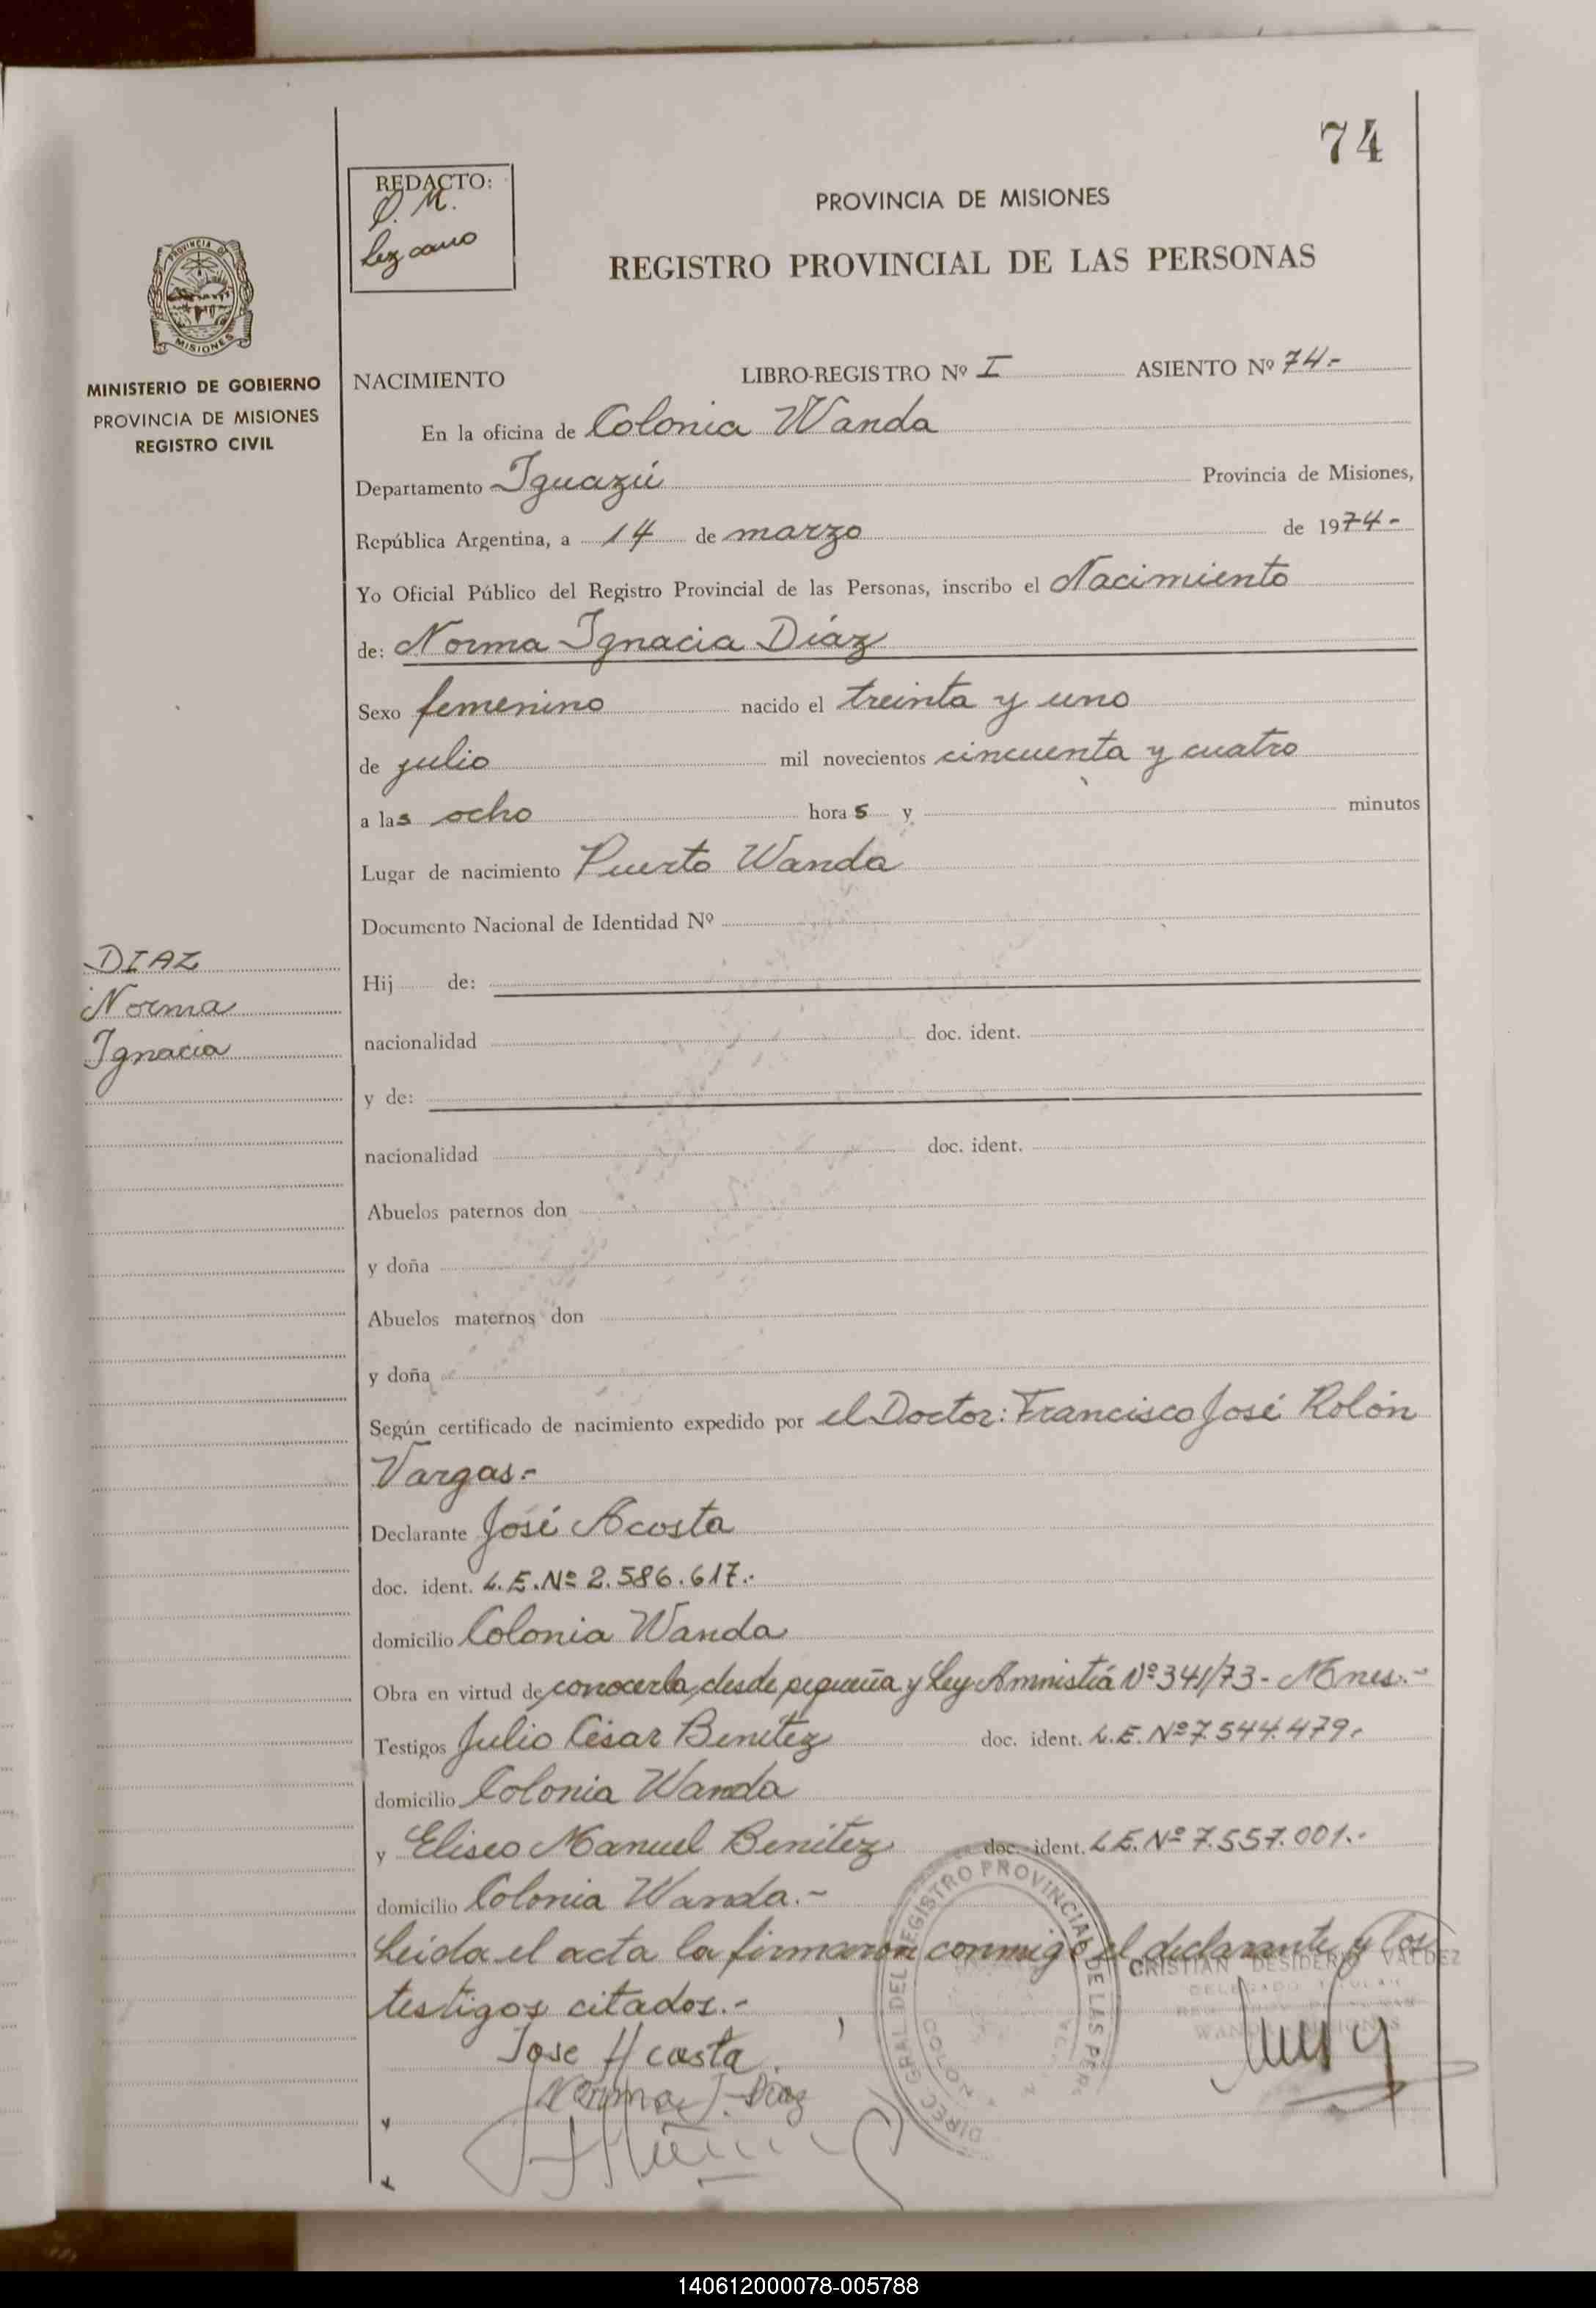 74
REDACTO:
O. M.
Lezcano
PROVINCIA DE MISIONES
REGISTRO PROVINCIAL DE LAS PERSONAS
PROVINCIA DE
MISIONES
MINISTERIO DE GOBIERNO
PROVINCIA DE MISIONES
REGISTRO CIVIL
NACIMIENTO LIBRO-REGISTRO Nº I ASIENTO Nº 74.-
En la oficina de Colonia Wanda
Departamento Iguazú Provincia de Misiones,
República Argentina, a 14 de marzo de 1974-
Yo Oficial Público del Registro Provincial de las Personas, inscribo el Nacimiento
de: Norma Ignacia Díaz
Sexo femenino nacido el treinta y uno
de julio mil novecientos cincuenta y cuatro
a las ocho horas y minutos
Lugar de nacimiento Puerto Wanda
Documento Nacional de Identidad Nº
DIAZ
Norma
Ignacia
Hij de:
nacionalidad doc. ident.
y de:
nacionalidad doc. ident.
Abuelos paternos don
y doña
Abuelos maternos don
y doña
Según certificado de nacimiento expedido por el Doctor: Francisco José Rolón
Vargas.-
Declarante José Acosta
doc. ident. L.E.Nº 2.586.617.-
domicilio Colonia Wanda
Obra en virtud de conocerla desde pequeña y Ley Amnistiá Nº 341/73- Mnes.-
Testigos Julio César Benítez doc. ident. L.E. Nº 7.544.479.
domicilio Colonia Wanda
y Eliseo Manuel Benítez doc. ident. L.E. Nº 7.557.001.-
domicilio Colonia Wanda.-
Leida el acta la firmaron conmigo el declarante y los
testigos citados.-
DIREC. GRAL. DEL REGISTRO PROVINCIAL DE LAS PER
CRISTIAN DESIDERIO VALDEZ
DELEGADO TITULAR
WANDA MISIONES
Jose Acosta
Norma I. Diaz
140612000078-005788